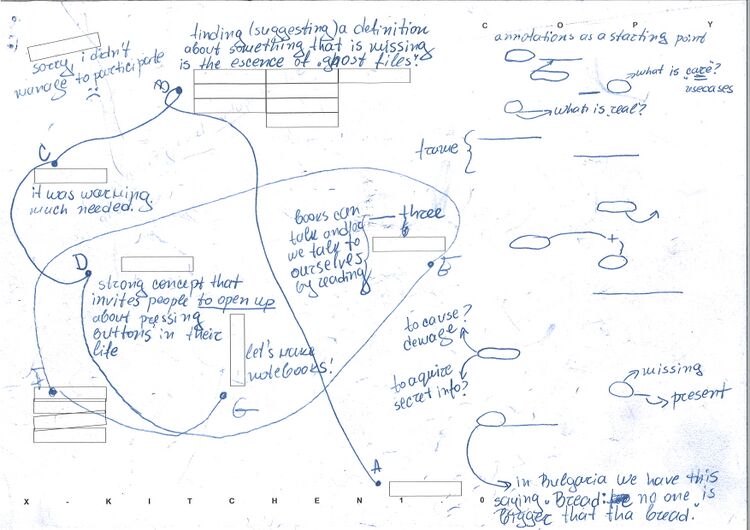 C O P Y
sorry, i didn't
manage to participate
:(
finding (suggesting) a definition
about something that is missing
is the escence of .ghost files!
annotations as a starting point
what is care?
usecases
what is real?
B
C
it was warming
much needed.
frame
books can
talk and/or
we talk to
ourselves
by reading
three
D
E
strong concept that
invites people to open up
about pressing
buttons in their
life
let's make
notebooks!
to cause?
dewage?
to aquire
secret info?
missing
present
F
G
A
in Bulgaria we have this
saying. Bread: no one is
bigger that tha bread."
X - K I T C H E N 1 . 0